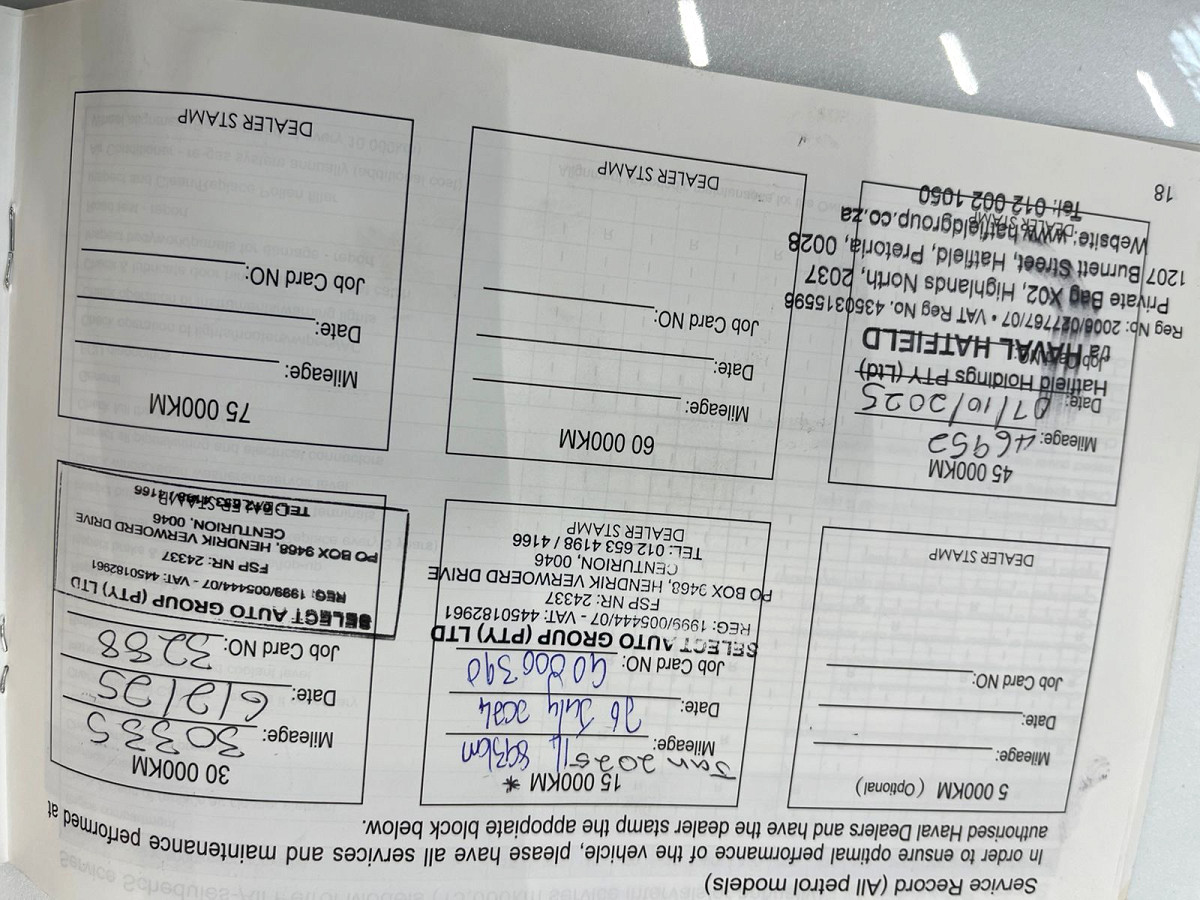 Service Record (All petrol models)
In order to ensure optimal performance of the vehicle, please have all services and maintenance performed at
authorised Haval Dealers and have the dealer stamp the appopiate block below.
5 000KM (Optional)
Mileage:
Date:
Job Card NO:
DEALER STAMP
15 000KM *
Jan 2025
Mileage:
Date: 26 July 2024
Job Card NO:
SELECT AUTO GROUP (PTY) LTD
REG: 1999/005444/07 - VAT: 4450182961
FSP NR: 24337
PO BOX 9468, HENDRIK VERWOERD DRIVE
CENTURION, 0046
TEL: 012 653 4198 / 4166
DEALER STAMP
30 000KM
Mileage: 30335
Date: 6/2/25
Job Card NO: 3288
SELECT AUTO GROUP (PTY) LTD
REG: 1999/005444/07 - VAT: 4450182961
FSP NR: 24337
PO BOX 9468, HENDRIK VERWOERD DRIVE
CENTURION, 0046
TEL: 012 653 4198 / 4166
DEALER STAMP
45 000KM
Mileage: 46952
Date: 07/10/2025
Hatfield Holdings PTY (Ltd)
Job Card NO:
t/a HAVAL HATFIELD
Reg No: 2006/027767/07 • VAT Reg No. 4350315596
Private Bag X02, Highlands North, 2037
1207 Burnett Street, Hatfield, Pretoria, 0028
Website: www.hatfieldgroup.co.za
DEALER STAMP
Tel: 012 002 1050
60 000KM
Mileage:
Date:
Job Card NO:
DEALER STAMP
75 000KM
Mileage:
Date:
Job Card NO:
DEALER STAMP
18